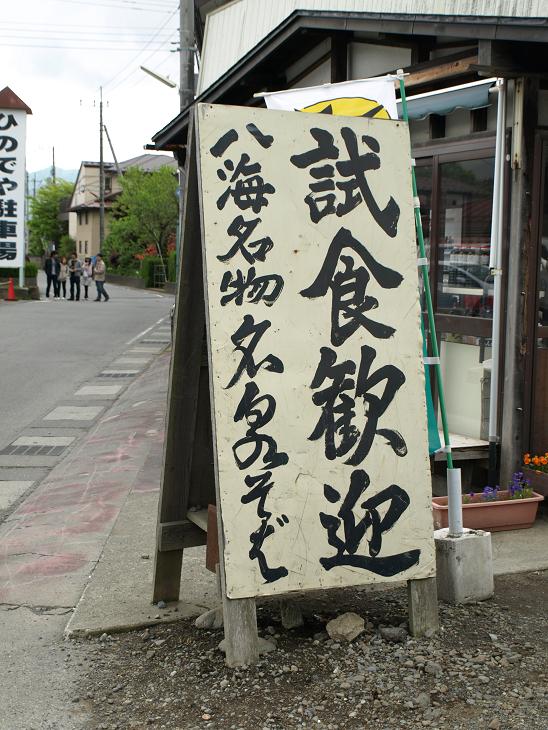 試食歓迎
八海名物名泉そば
ひのでや駐車場